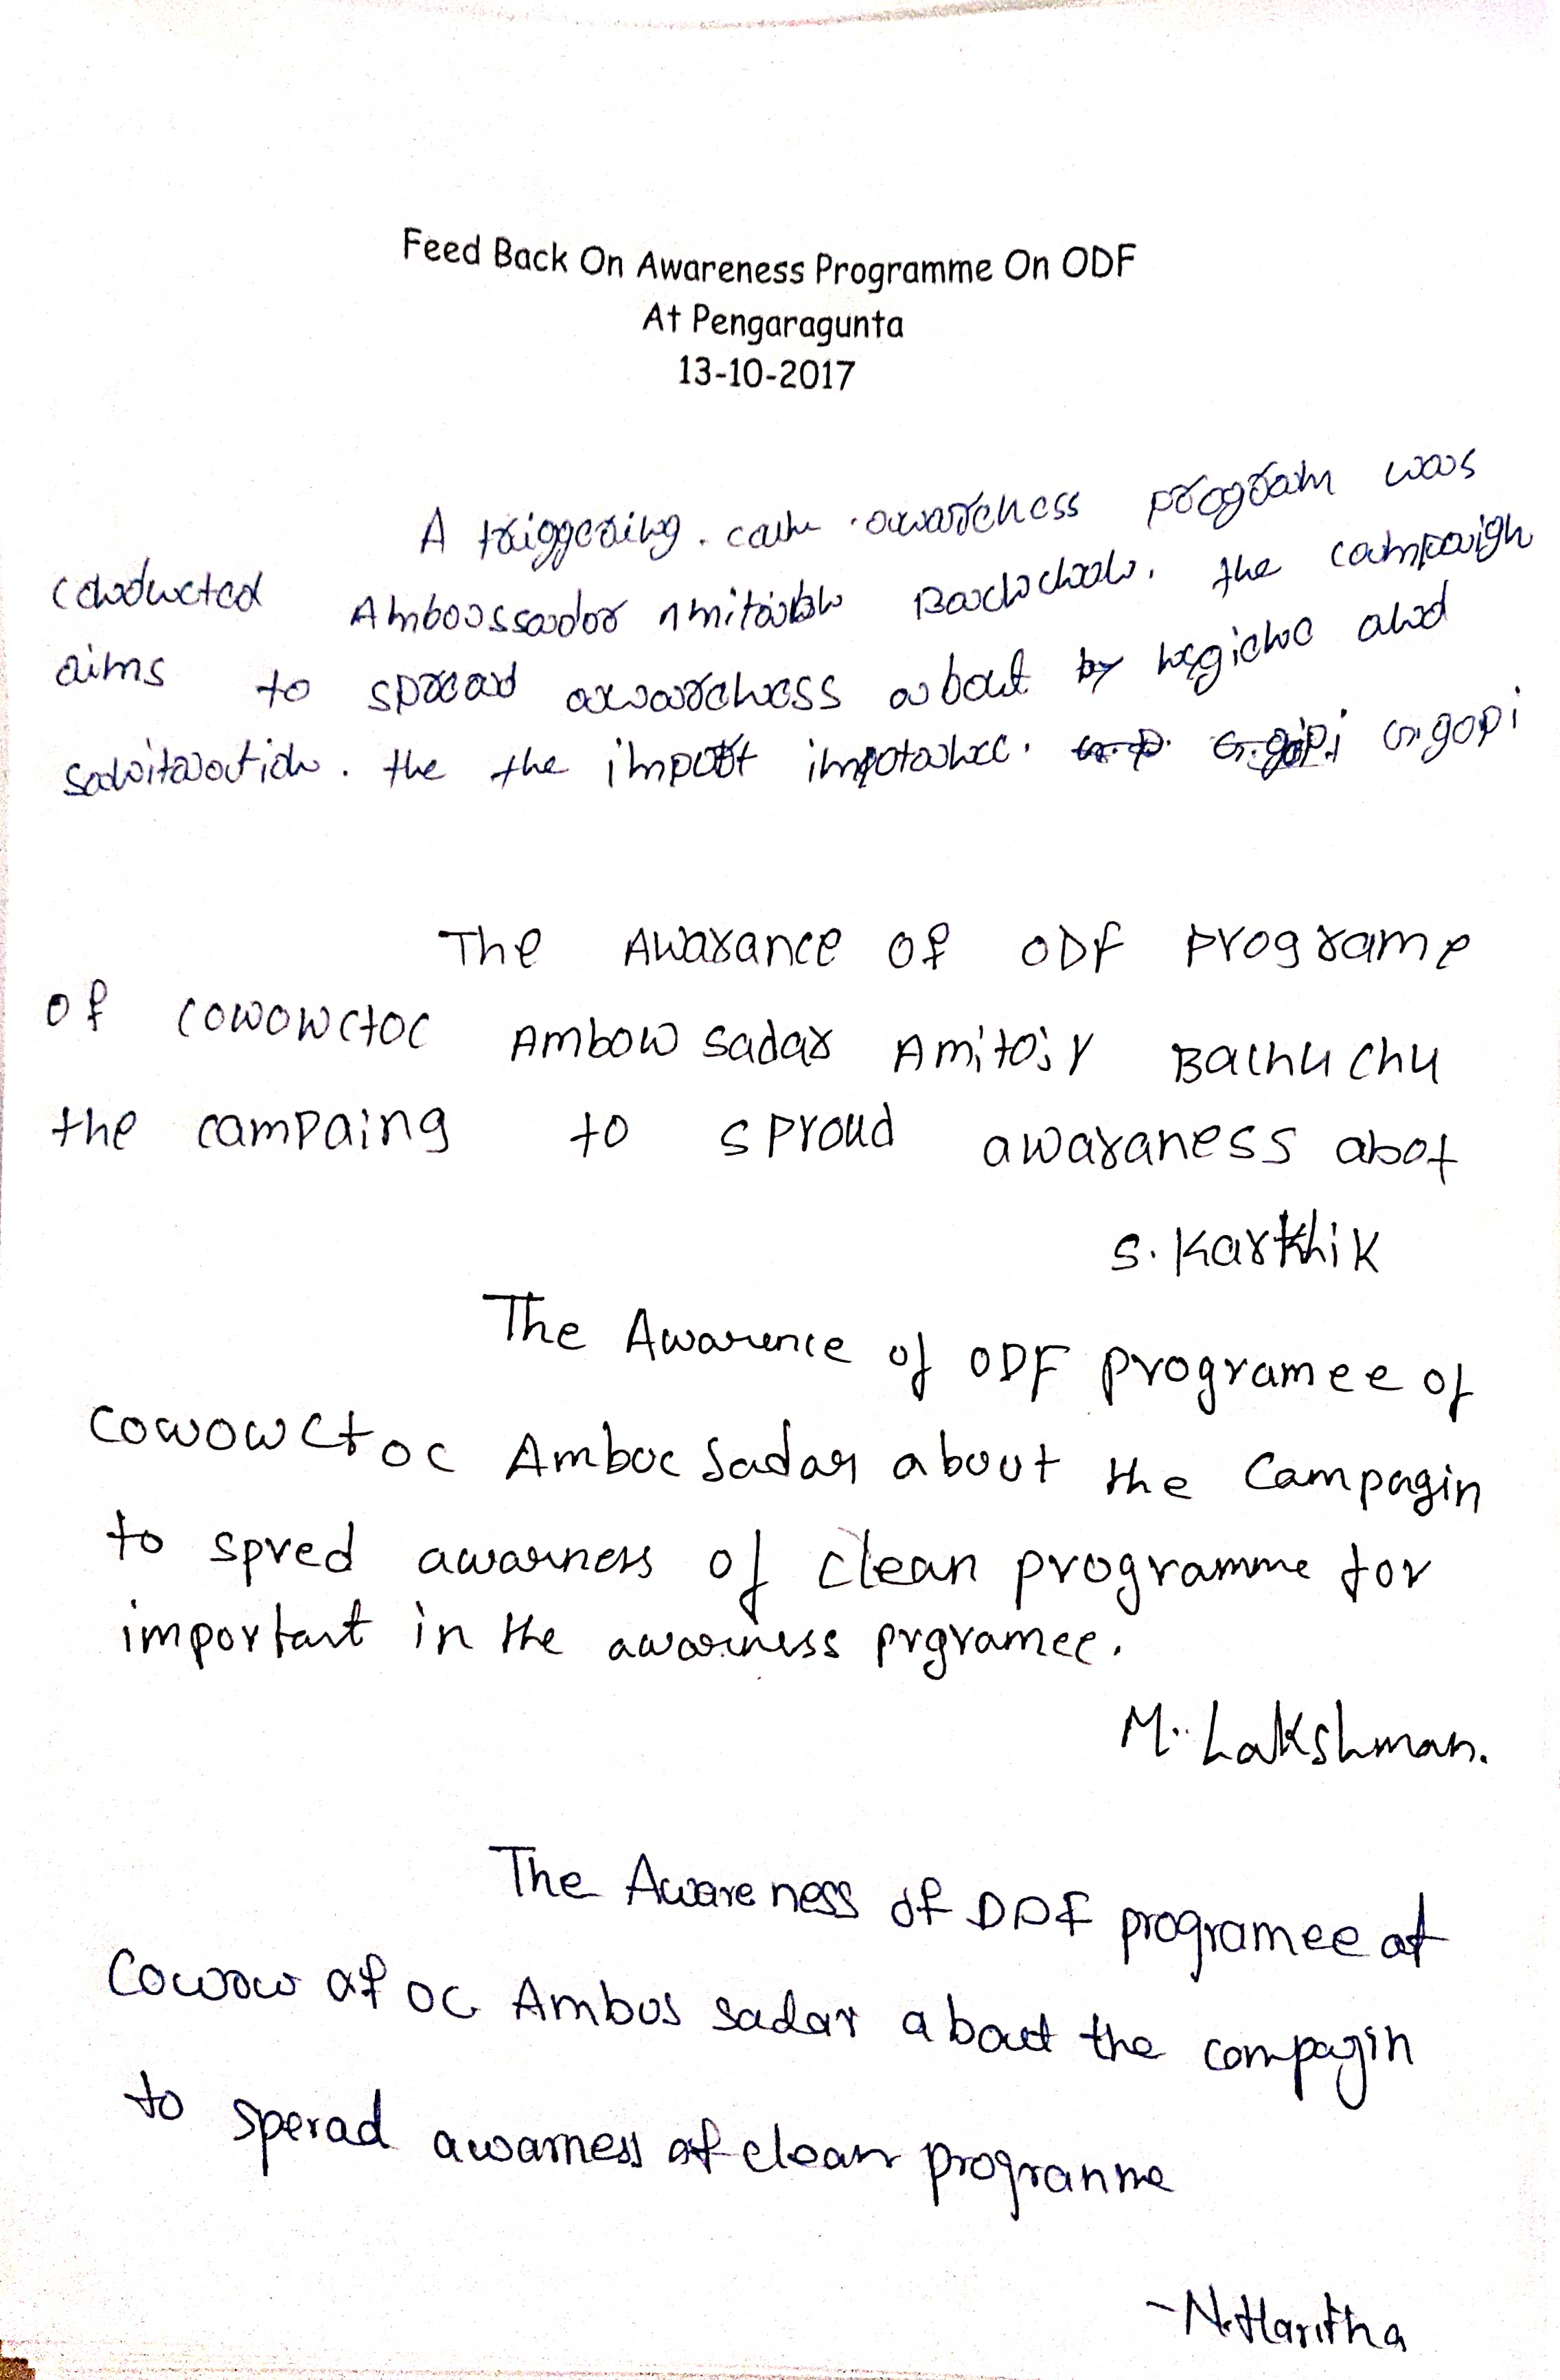 Feed Back On Awareness Programme On ODF
At Pengaragunta
13-10-2017
A triggering. awareness program was
conducted Ambassador Amitabh Bachchan. the campaign
aims to spread awareness about hygiene and
sanitation. the the import impotance. G. gopi
The Awarance of ODF Programe
of cowowctoc Ambow sadar Amitoir Bachuchu
the campaing to sproud awaraness abot
S. Karthik
The Awarence of ODF programee of
cowowctoc Amboc sadar about the Campagin
to spred awarness of clean programme for
important in the awarness prgramee.
M. Lakshman.
The Awareness of DDF programee at
Cowow af oc Ambos sadar about the compagin
to sperad awarness of clean progranme
-N. Haritha